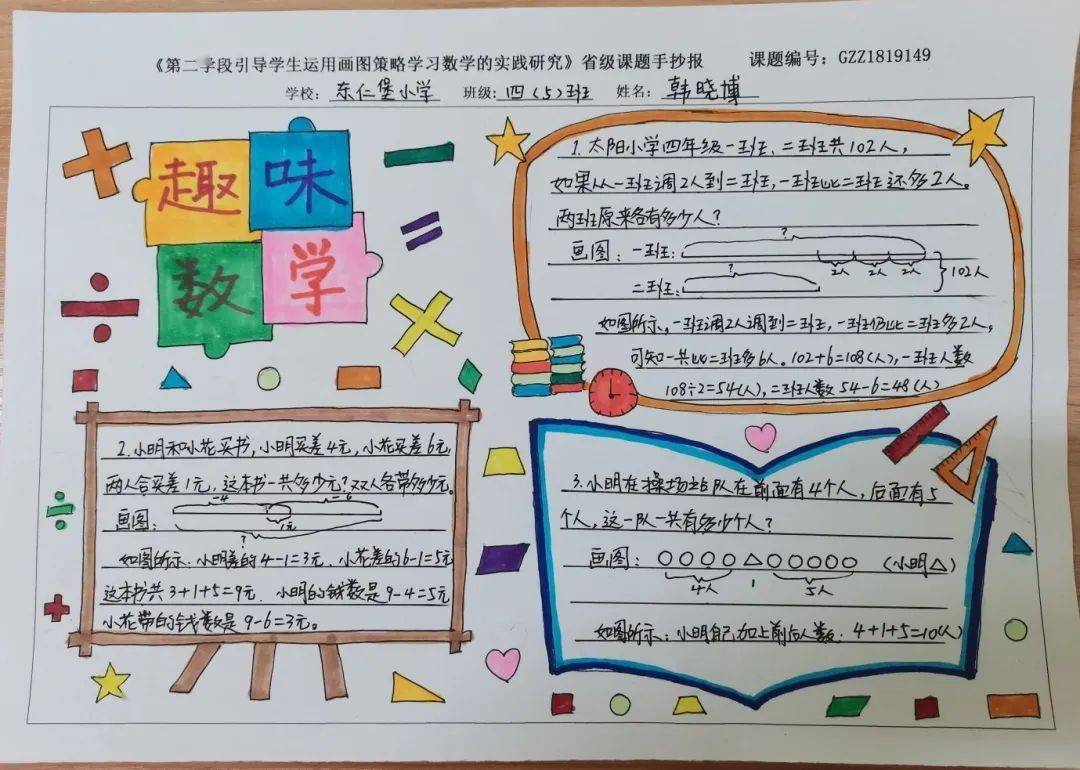 《第二学段引导学生运用画图策略学习数学的实践研究》省级课题手抄报 课题编号：GZZ1819149
学校：东仁堡小学 班级：四（5）班 姓名：韩晓博
趣味
数学
1.太阳小学四年级一班、二班共102人，
如果从一班调2人到二班，一班比二班还多2人。
两班原来各有多少人？
画图：一班： ? 2人 2人 2人
二班： ? 102人
如图所示，一班调2人调到二班，一班仍比二班多2人，
可知一共比二班多6人。102+6=108（人），一班人数
108÷2=54（人），二班人数 54-6=48（人）
2.小明和小花买书，小明买差4元，小花买差6元，
两人合买差1元，这本书一共多少元？双人各带多少元。
画图： -4 -6 1元
?
如图所示：小明差的4-1=3元，小花差的6-1=5元
这本书共3+1+5=9元，小明的钱数是9-4=5元
小花带的钱数是 9-6=3元。
3.小明在操场站队在前面有4个人，后面有5
个人，这一队一共有多少个人？
画图：○○○○△○○○○○ （小明△）
4人 1 5人
如图所示：小明自己加上前后人数：4+1+5=10（人）